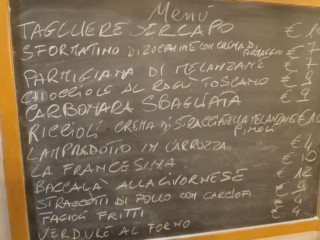 Menú
TAGLIERE SERCAPO €
SFORMATINO DI ZUCCHINE CON CREMA DI FORMAGGIO € 7
PARMIGIANA DI MELANZANE € 7
CHIOCCIOLE AL RAGÙ TOSCANO € 8
CARBONARA SBAGLIATA € 9
RICCIOLI CREMA DI STRACCIATELLA MELANZANE € 10
PINOLI
LAMPREDOTTO IN CARROZZA € 4
LA FRANCESINA € 10
BACCALÀ ALLA LIVORNESE € 12
STRACCETTI DI POLLO CON CARCIOFI €
FAGIOLI FRITTI € 4
VERDURE AL FORNO 4